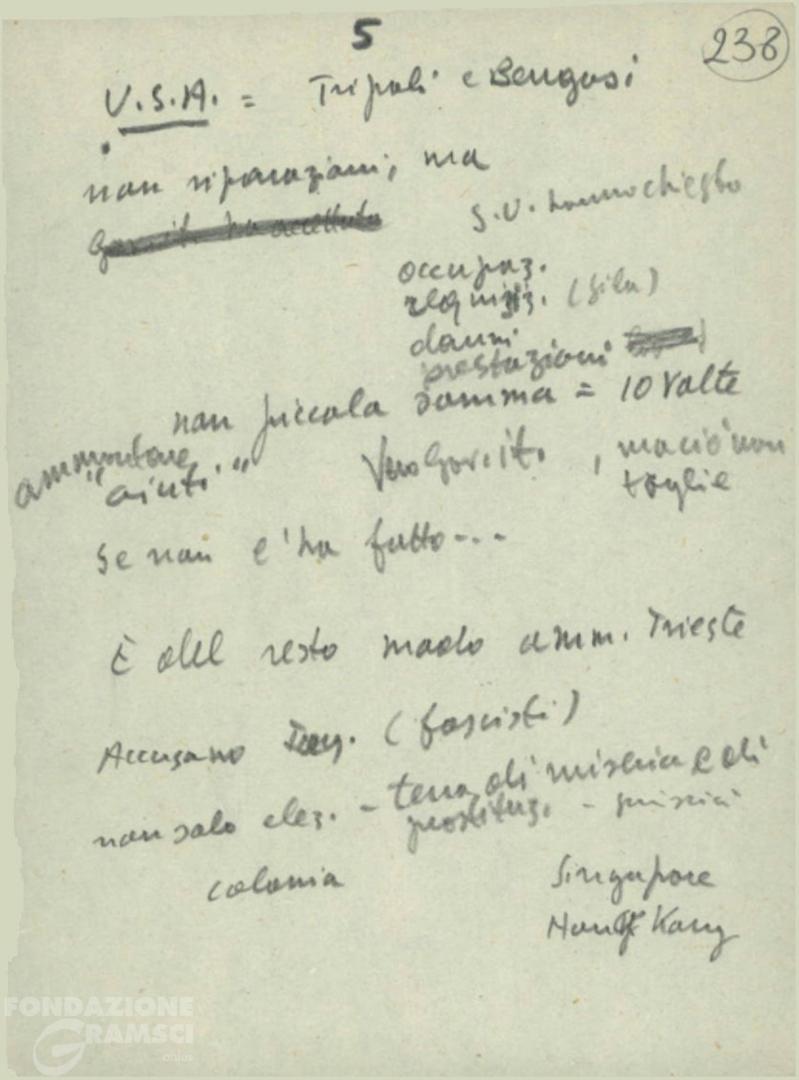 5
238
U.S.A. = Tripoli e Bengasi
non riparazioni, ma
S.U. hanno chiesto
occupaz.
requisiz. (Sila)
danni
prestazioni
non piccola somma = 10 volte
ammontare
"aiuti"
, ma ciò non
toglie
Se non l'ha fatto...
È del resto modo amm. Trieste
Accusano (fascisti)
non solo elez. - terra di miseria e di
prostituz. -
colonia
Singapore
Hong Kong
FONDAZIONE
GRAMSCI
onlus